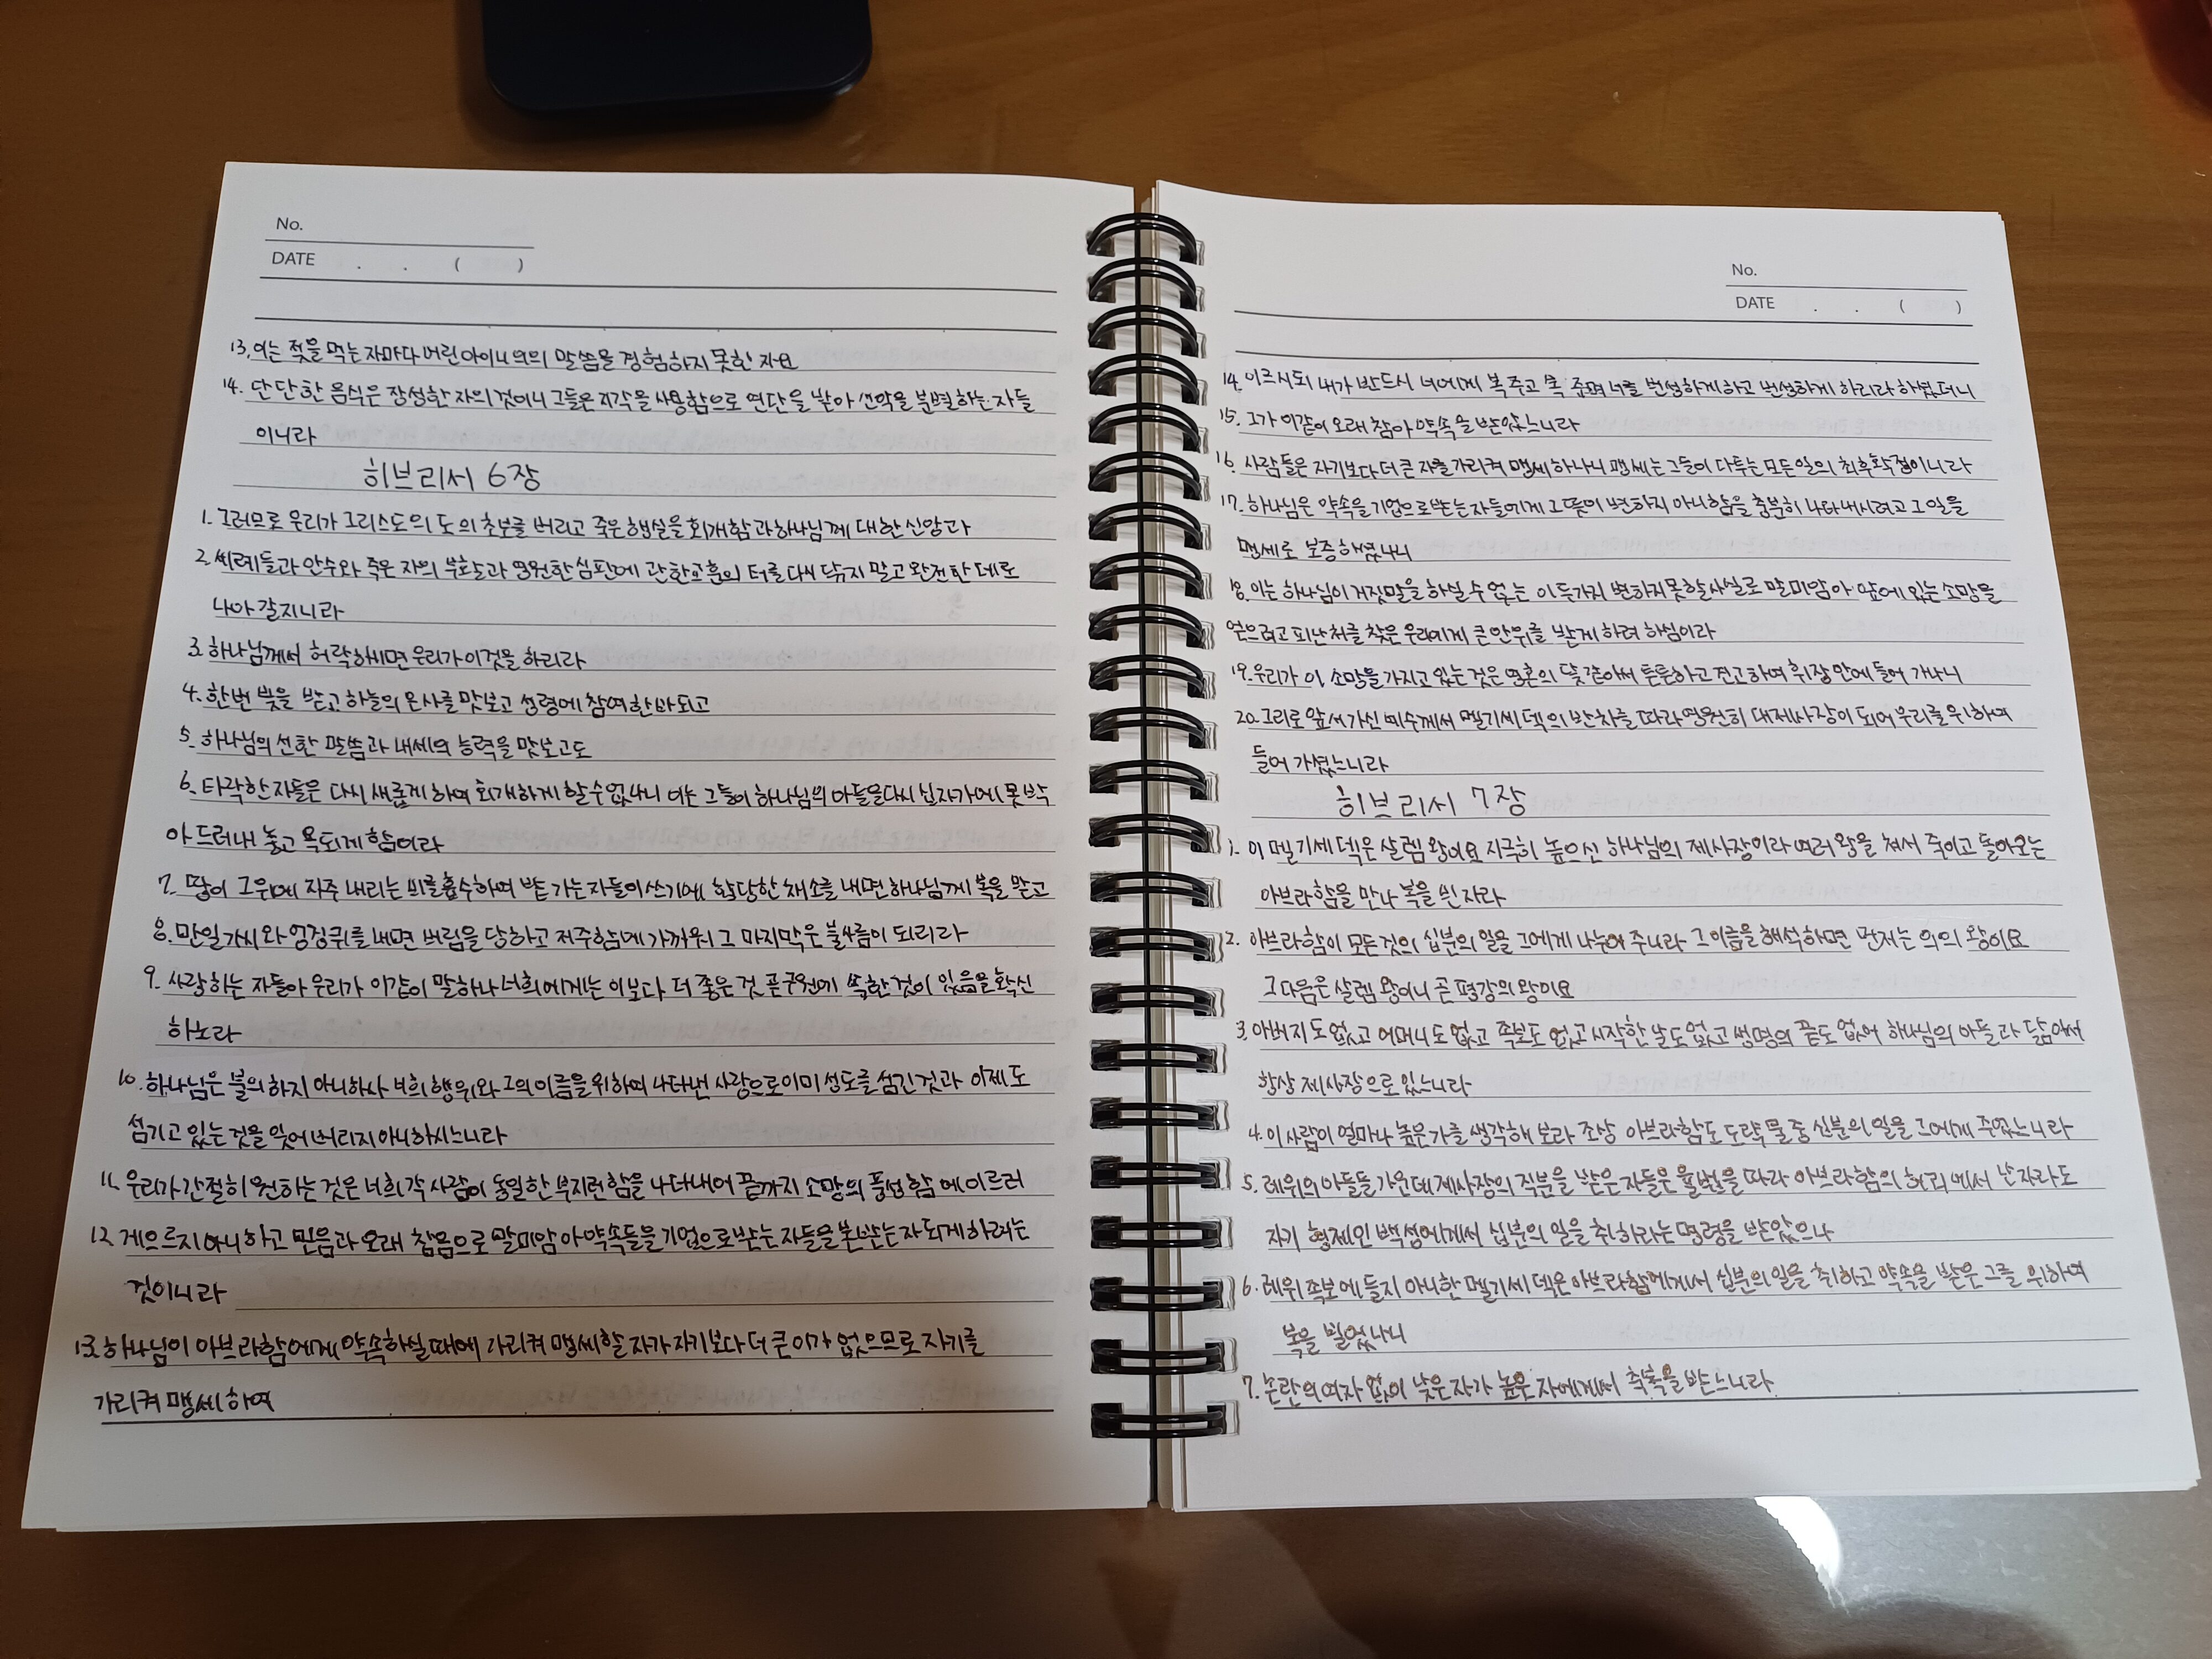 No.
DATE . . ( )
13. 이는 젖을 먹는 자마다 어린 아이니 의의 말씀을 경험하지 못한 자요
14. 단단한 음식은 장성한 자의 것이니 그들은 지각을 사용함으로 연단을 받아 선악을 분별하는 자들
이니라
히브리서 6장
1. 그러므로 우리가 그리스도의 도의 초보를 버리고 죽은 행실을 회개함과 하나님께 대한 신앙과
2. 씨례들과 안수와 죽은 자의 부활과 영원한 심판에 관한 교훈의 터를 다시 닦지 말고 완전한 데로
나아 갈지니라
3. 하나님께서 허락하시면 우리가 이것을 하리라
4. 한번 빛을 받고 하늘의 은사를 맛보고 성령에 참여한 바 되고
5. 하나님의 선한 말씀과 내세의 능력을 맛보고도
6. 타락한 자들은 다시 새롭게 하여 회개하게 할 수 없나니 이는 그들이 하나님의 아들을 다시 십자가에 못 박
아 드러내 놓고 욕되게 함이라
7. 땅이 그 위에 자주 내리는 비를 흡수하여 밭 가는 자들이 쓰기에 합당한 채소를 내면 하나님께 복을 받고
8. 만일 가시와 엉겅퀴를 내면 버림을 당하고 저주함에 가까워 그 마지막은 불사름이 되리라
9. 사랑하는 자들아 우리가 이같이 말하나 너희에게는 이보다 더 좋은 것 곧 구원에 속한 것이 있음을 확신
하노라
10. 하나님은 불의하지 아니하사 너희 행위와 그의 이름을 위하여 나타낸 사랑으로 이미 성도를 섬긴 것과 이제도
섬기고 있는 것을 잊어버리지 아니하시느니라
11. 우리가 간절히 원하는 것은 너희 각 사람이 동일한 부지런함을 나타내어 끝까지 소망의 풍성함에 이르러
12. 게으르지 아니하고 믿음과 오래 참음으로 말미암아 약속들을 기업으로 받는 자들을 본받는 자 되게 하려는
것이니라
13. 하나님이 아브라함에게 약속하실 때에 가리켜 맹세할 자가 자기보다 더 큰 이가 없으므로 자기를
가리켜 맹세하여
No.
DATE . . ( )
14. 이르시되 내가 반드시 너에게 복 주고 복 주며 너를 번성하게 하고 번성하게 하리라 하셨더니
15. 그가 이같이 오래 참아 약속을 받았느니라
16. 사람들은 자기보다 더 큰 자를 가리켜 맹세하나니 맹세는 그들이 다투는 모든 일의 최후 확정이니라
17. 하나님은 약속을 기업으로 받는 자들에게 그 뜻이 변하지 아니함을 충분히 나타내시려고 그 일을
맹세로 보증하셨나니
18. 이는 하나님이 거짓말을 하실 수 없는 이 두 가지 변하지 못할 사실로 말미암아 앞에 있는 소망을
얻으려고 피난처를 찾은 우리에게 큰 안위를 받게 하려 하심이라
19. 우리가 이 소망을 가지고 있는 것은 영혼의 닻 같아서 튼튼하고 견고하여 휘장 안에 들어 가나니
20. 그리로 앞서 가신 예수께서 멜기세덱의 반차를 따라 영원히 대제사장이 되어 우리를 위하여
들어 가셨느니라
히브리서 7장
1. 이 멜기세덱은 살렘 왕이요 지극히 높으신 하나님의 제사장이라 여러 왕을 쳐서 죽이고 돌아오는
아브라함을 만나 복을 빈 자라
2. 아브라함이 모든 것의 십분의 일을 그에게 나누어 주니라 그 이름을 해석하면 먼저는 의의 왕이요
그 다음은 살렘 왕이니 곧 평강의 왕이요
3. 아버지도 없고 어머니도 없고 족보도 없고 시작한 날도 없고 생명의 끝도 없어 하나님의 아들과 닮아서
항상 제사장으로 있느니라
4. 이 사람이 얼마나 높은가를 생각해 보라 조상 아브라함도 노략물 중 십분의 일을 그에게 주었느니라
5. 레위의 아들들 가운데 제사장의 직분을 받은 자들은 율법을 따라 아브라함의 허리에서 난 자라도
자기 형제인 백성에게서 십분의 일을 취하라는 명령을 받았으나
6. 레위 족보에 들지 아니한 멜기세덱은 아브라함에게서 십분의 일을 취하고 약속을 받은 그를 위하여
복을 빌었나니
7. 논란의 여지 없이 낮은 자가 높은 자에게서 축복을 받느니라